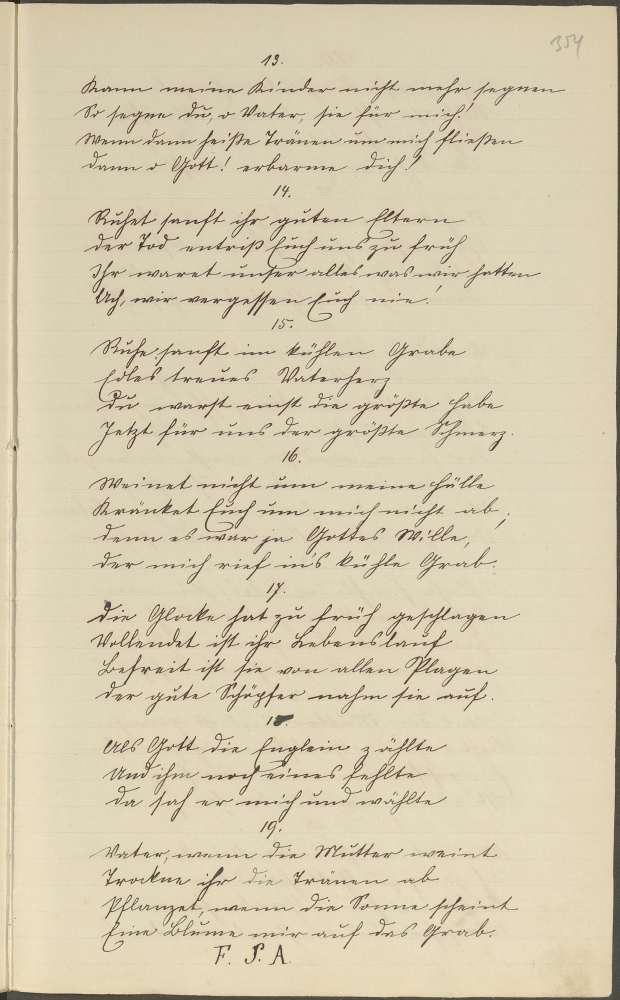 354
13.
Kann meine Kinder nicht mehr segnen
So segne du, o Vater, sie für mich!
Wenn dann heiße Tränen um mich fließen
dann o Gott! erbarme dich!
14.
Ruhet sanft ihr guten Eltern
der Tod entriß Euch uns zu früh
Ihr waret unser alles was wir hatten
Ach, wir vergessen Euch nie!
15.
Ruhe sanft im kühlen Grabe
Edles treues Vaterherz
Du warst einst die größte Habe
Jetzt für uns der größte Schmerz.
16.
Weinet nicht um meine Hülle
Kränket Euch um mich nicht ab,
denn es war ja Gottes Wille,
der mich rief in's kühle Grab.
17.
Die Glocke hat zu früh geschlagen
Vollendet ist ihr Lebenslauf
Befreit ist sie von allen Plagen
der gute Schöpfer nahm sie auf.
18.
Als Gott die Englein zählte
Und ihm noch eines fehlte
Da sah er mich und wählte
19.
Vater, wenn die Mutter weint
Trockne ihr die Tränen ab
Pflanzet, wenn die Sonne scheint
Eine Blume mir auf das Grab.
F. S. A.